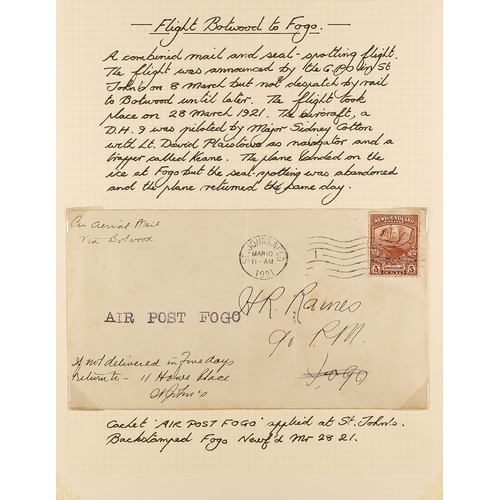 Flight Botwood to Fogo.
A combined mail and seal-spotting flight.
The flight was announced by the G.P.O in St
John's on 8 March but not despatch by rail
to Botwood until later. The flight took
place on 28 March 1921. The aircraft, a
D.H.9 was piloted by Major Sidney Cotton
with Lt. David Plaistowe as navigator and a
trapper called Keane. The plane landed on the
ice at Fogo but the seal-spotting was abandoned
and the plane returned the same day.
Per Aerial Mail
Via Botwood
ST. JOHN'S, NFLD
MAR 10
11-AM
1921
NEWFOUNDLAND
3 3
CENTS
AIR POST FOGO
H.R. Raines
℅ P.M.
Fogo
If not delivered in five days
Return to - 11 Howe Place
St John's
Cachet 'AIR POST FOGO' applied at St. John's.
Backstamped Fogo Newf'd Mr 28 21.